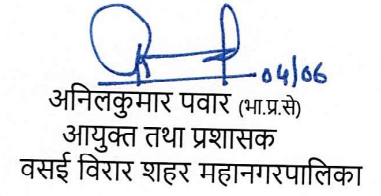 04/06
अनिलकुमार पवार (भा.प्र.से)
आयुक्त तथा प्रशासक
वसई विरार शहर महानगरपालिका